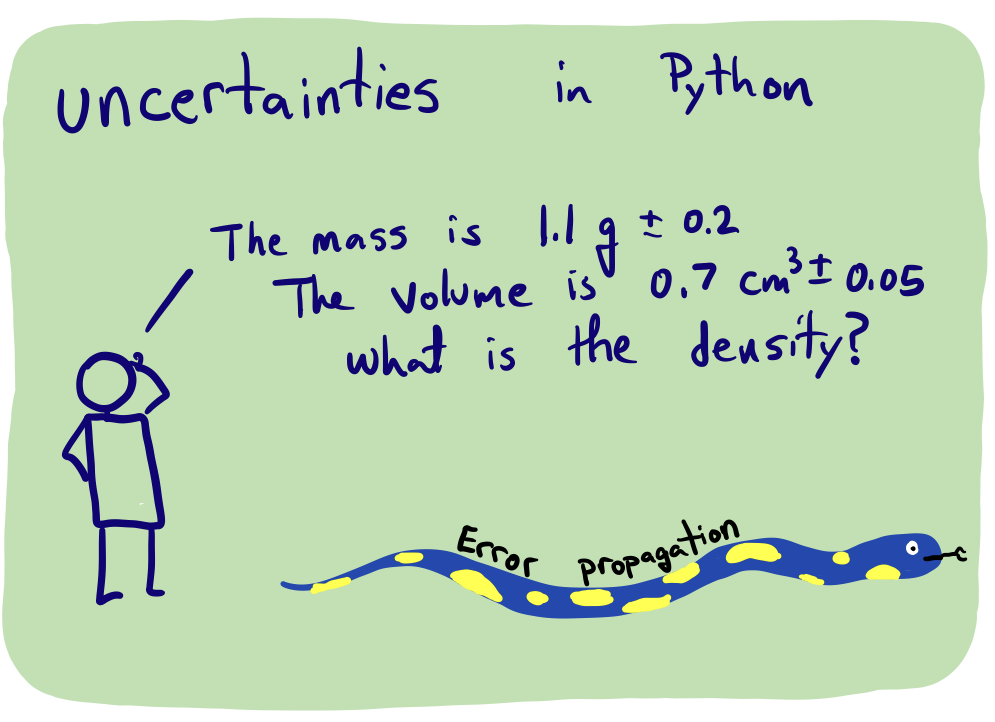 uncertainties in Python
The mass is 1.1 g ± 0.2
The volume is 0.7 cm³ ± 0.05
what is the density?
Error propagation